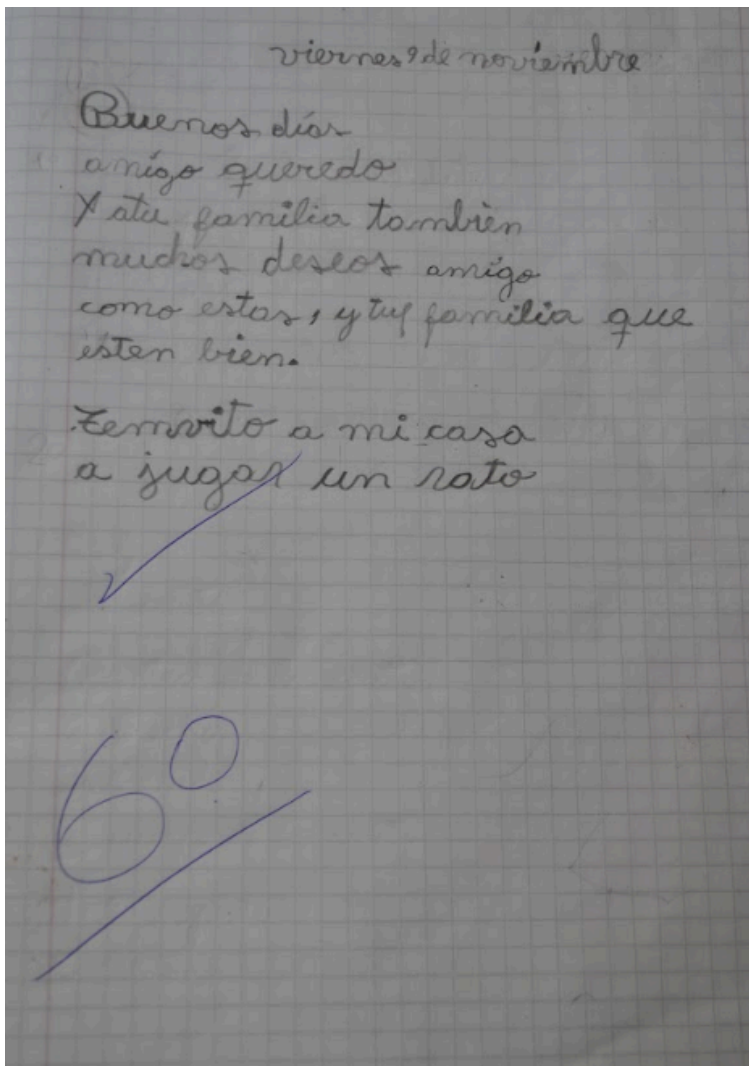 viernes 9 de noviembre
Buenos días
amígo queredo
Y atu familia tambien
muchos deseos amígo
como estas, y tuf familia que
esten bien.
temvito a mi casa
a jugar un rato
6º